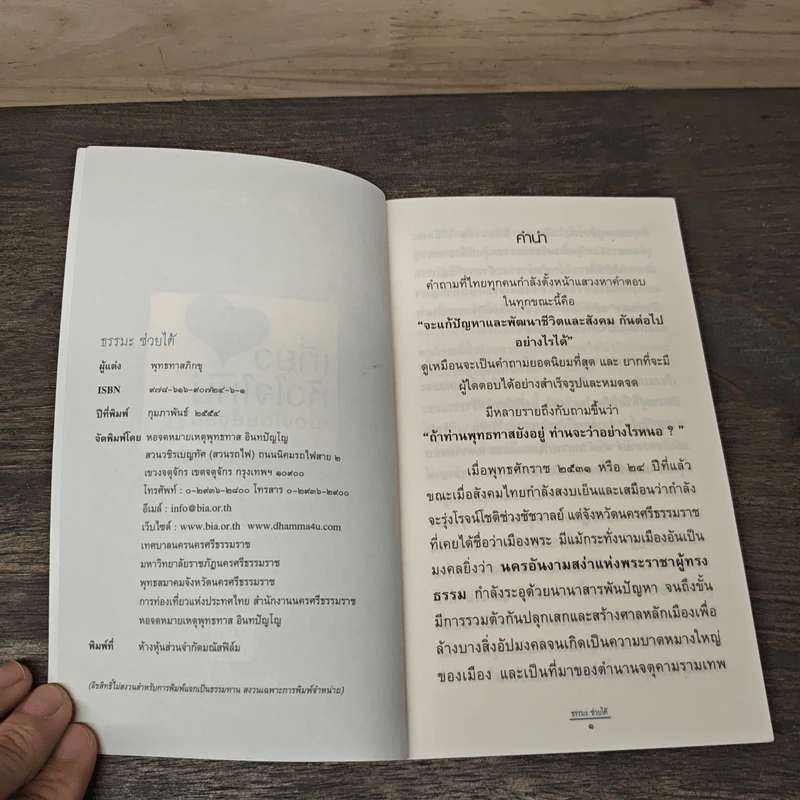 ธรรมะ ช่วยได้
ผู้แต่ง พุทธทาสภิกขุ
ISBN ๙๗๘-๖๑๖-๙๐๗๒๕-๖-๑
ปีที่พิมพ์ กุมภาพันธ์ ๒๕๕๔
จัดพิมพ์โดย หอจดหมายเหตุพุทธทาส อินทปัญโญ
สวนวชิรเบญทัศ (สวนรถไฟ) ถนนนิคมรถไฟสาย ๒
เขวงจตุจักร เขตจตุจักร กรุงเทพฯ ๑๐๙๐๐
โทรศัพท์ : ๐-๒๙๓๖-๒๘๐๐ โทรสาร ๐-๒๙๓๖-๒๙๐๐
อีเมล์ : info@bia.or.th
เว็บไซต์ : www.bia.or.th www.dhamma4u.com
เทศบาลนครนครศรีธรรมราช
มหาวิทยาลัยราชภัฏนครศรีธรรมราช
พุทธสมาคมจังหวัดนครศรีธรรมราช
การท่องเที่ยวแห่งประทศไทย สำนักงานนครศรีธรรมราช
หอจดหมายเหตุพุทธทาส อินทปัญโญ
พิมพ์ที่ ห้างหุ้นส่วนจำกัดมณัสฟิล์ม
(ลิขสิทธิ์ไม่สงวนสำหรับการพิมพ์แจกเป็นธรรมทาน สงวนเฉพาะการพิมพ์จำหน่าย)
คำนำ
คำถามที่ไทยทุกคนกำลังตั้งหน้าแสวงหาคำตอบ
ในทุกขณะนี้คือ
“จะแก้ปัญหาและพัฒนาชีวิตและสังคม กันต่อไป
อย่างไรได้”
ดูเหมือนจะเป็นคำถามยอดนิยมที่สุด และ ยากที่จะมี
ผู้ใดตอบได้อย่างสำเร็จรูปและหมดจด
มีหลายรายถึงกับถามขึ้นว่า
“ถ้าท่านพุทธทาสยังอยู่ ท่านจะว่าอย่างไรหนอ ? ”
เมื่อพุทธศักราช ๒๕๓๑ หรือ ๒๔ ปีที่แล้ว
ขณะเมื่อสังคมไทยกำลังสงบเย็นและเสมือนว่ากำลัง
จะรุ่งโรจน์โชติช่วงชัชวาลย์ แต่จังหวัดนครศรีธรรมราช
ที่เคยได้ชื่อว่าเมืองพระ มีแม้กระทั่งนามเมืองอันเป็น
มงคลยิ่งว่า นครอันงามสง่าแห่งพระราชาผู้ทรง
ธรรม กำลังระอุด้วยนานาสารพันปัญหา จนถึงขั้น
มีการรวมตัวกันปลุกเสกและสร้างศาลหลักเมืองเพื่อ
ล้างบางสิ่งอัปมงคลจนเกิดเป็นความบาดหมางใหญ่
ของเมือง และเป็นที่มาของตำนานจตุคามรามเทพ
ธรรมะ ช่วยได้
๑